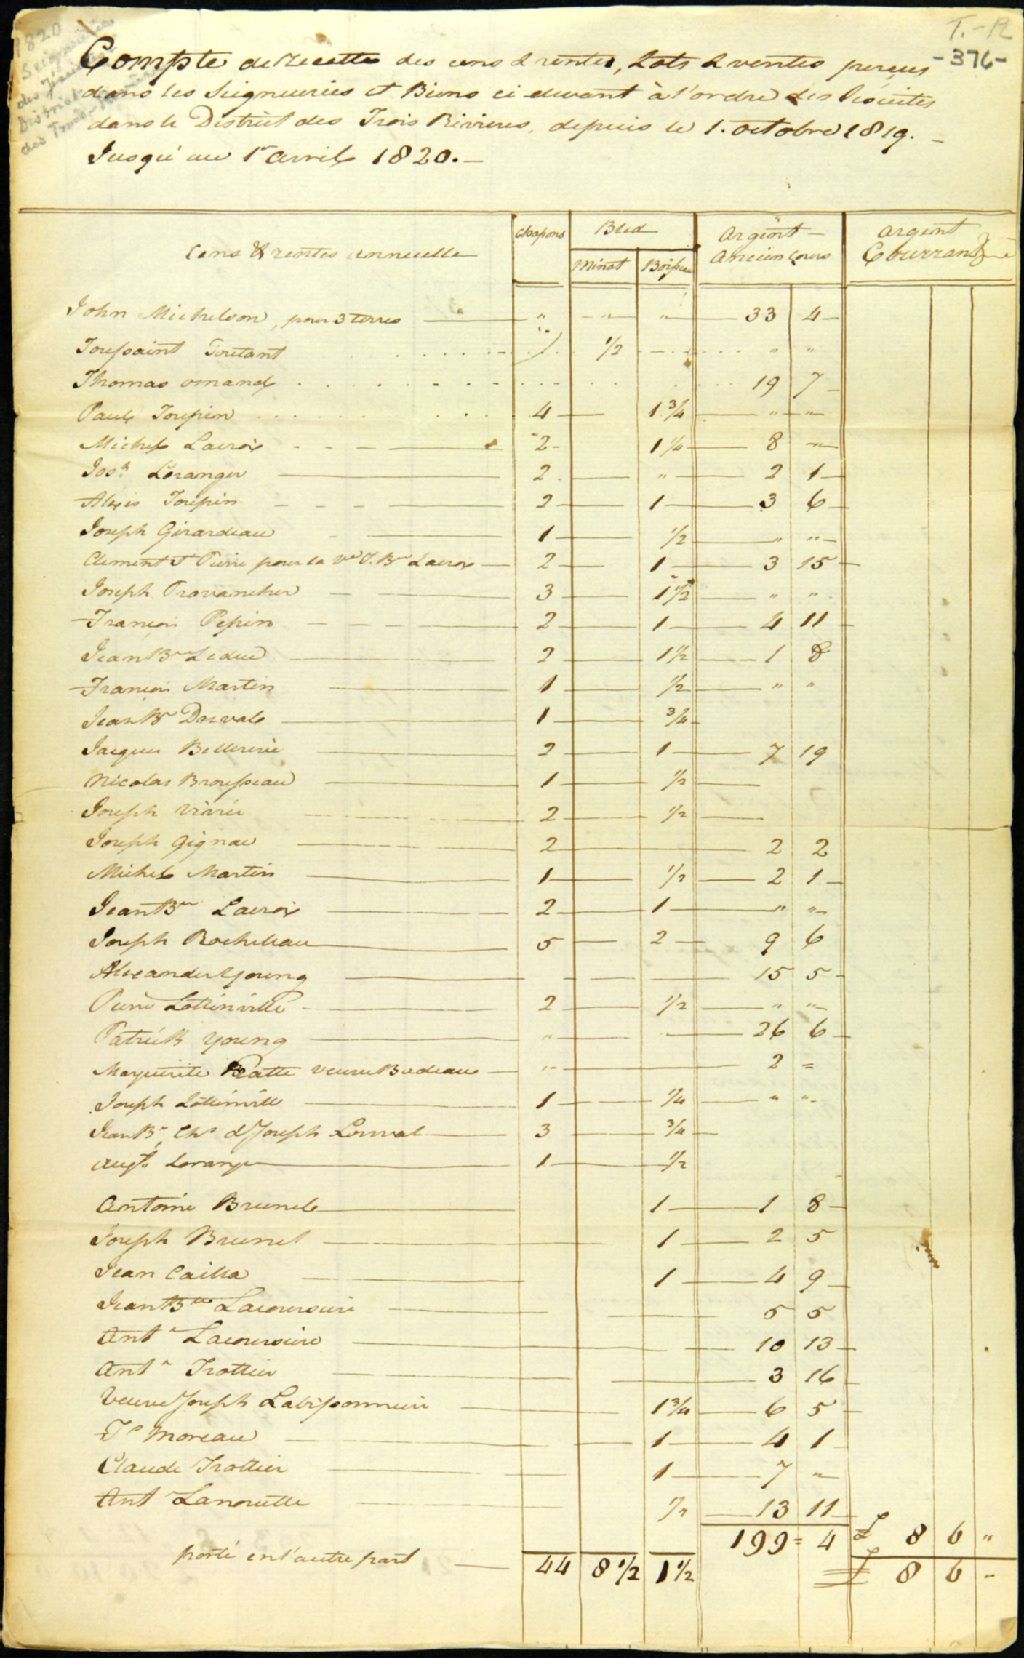 1820
Seigneuries
des Jésuites
District
des Trois
T.-R
-376-
Compte de recette des cens & rentes, Lots & ventes perçues
dans les Seigneuries et Biens ci devant à l'ordre des Jésuites
dans le District des Trois Rivieres, depuis le 1. octobre 1819. -
Jusqu'au 1r avril 1820. -
Cens & rentes annuelle Chapons Bled Argent Ancien Cours Argent Courrant
Minot Boisseau
John Michelson, pour 3 terres " " " 33 4
Toussaint Toutant 1/2 " "
Thomas omand 19 7
Paul Toupin 4 1 3/4 " "
Michel Lacroix 2 1 1/4 8 "
Josh Loranger 2 " 2 1
Alexis Toupin 2 1 3 6
Joseph Girardeau 1 1/2 " "
Clement St Pierre pour la Ve J. Bte Lacroix 2 1 3 15
Joseph Provancher 3 1 1/2 " "
Francois Pepin 2 1 4 11
Jean Bte Leduc 2 1 1/2 1 8
Francois Martin 1 1/2 " "
Jean Bte Dorval 1 3/4
Jacques Bellerive 2 1 7 19
Nicolas Brousseau 1 1/2
Joseph Vivier 2 1/2
Joseph Gignac 2 2 2
Michel Martin 1 1/2 2 1
Jean Bte Lacroix 2 1 " "
Joseph Rocheleau 5 2 9 6
Alexander Young 15 5
Pierre Lottinville 2 1/2 " "
Patrick Young " 26 6
Marguerite Ratte veuve Badeau " 2 "
Joseph Lottinville 1 1/4 " "
Jean Bte, Chs & Joseph Louval 3 3/4
Augt. Loranger 1 1/2
Antoine Brunel 1 1 8
Joseph Brunel 1 2 5
Jean Cailla 1 4 9
Jean Bte Lacoursiere 5 5
Ante Lacoursiere 10 13
Ante Trottier 3 16
Veuve Joseph Labissonniere 1 3/4 6 5
Moreau 1 4 1
Claude Trottier 1 7 "
Ant Lanouette 1/2 13 11
199 = 4 £ 8 6 "
porté en l'autre part 44 8 1/2 1 1/2 £ 8 6 -